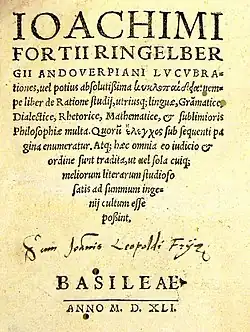 IOACHIMI
FORTII RINGELBER
GII ANDOVERPIANI LVCVBRA
tiones, uel potius absolutissima κυκλοπαιδεία: nem-
pe liber de Ratione studij, utriusq; linguæ, Grāmatice,
Dialectice, Rhetorice, Mathematice, & sublimioris
Philosophiæ multa. Quorū ἔλεγχος sub sequenti pa
gina enumeratur. Atq; hæc omnia eo iudicio &
ordine sunt tradita, ut uel sola cuiq;
meliorum literarum studioso
satis ad summum inge-
nij cultum esse
possint.
Sum Johannis Leopoldi
BASILEAE
ANNO M. D. XLI.